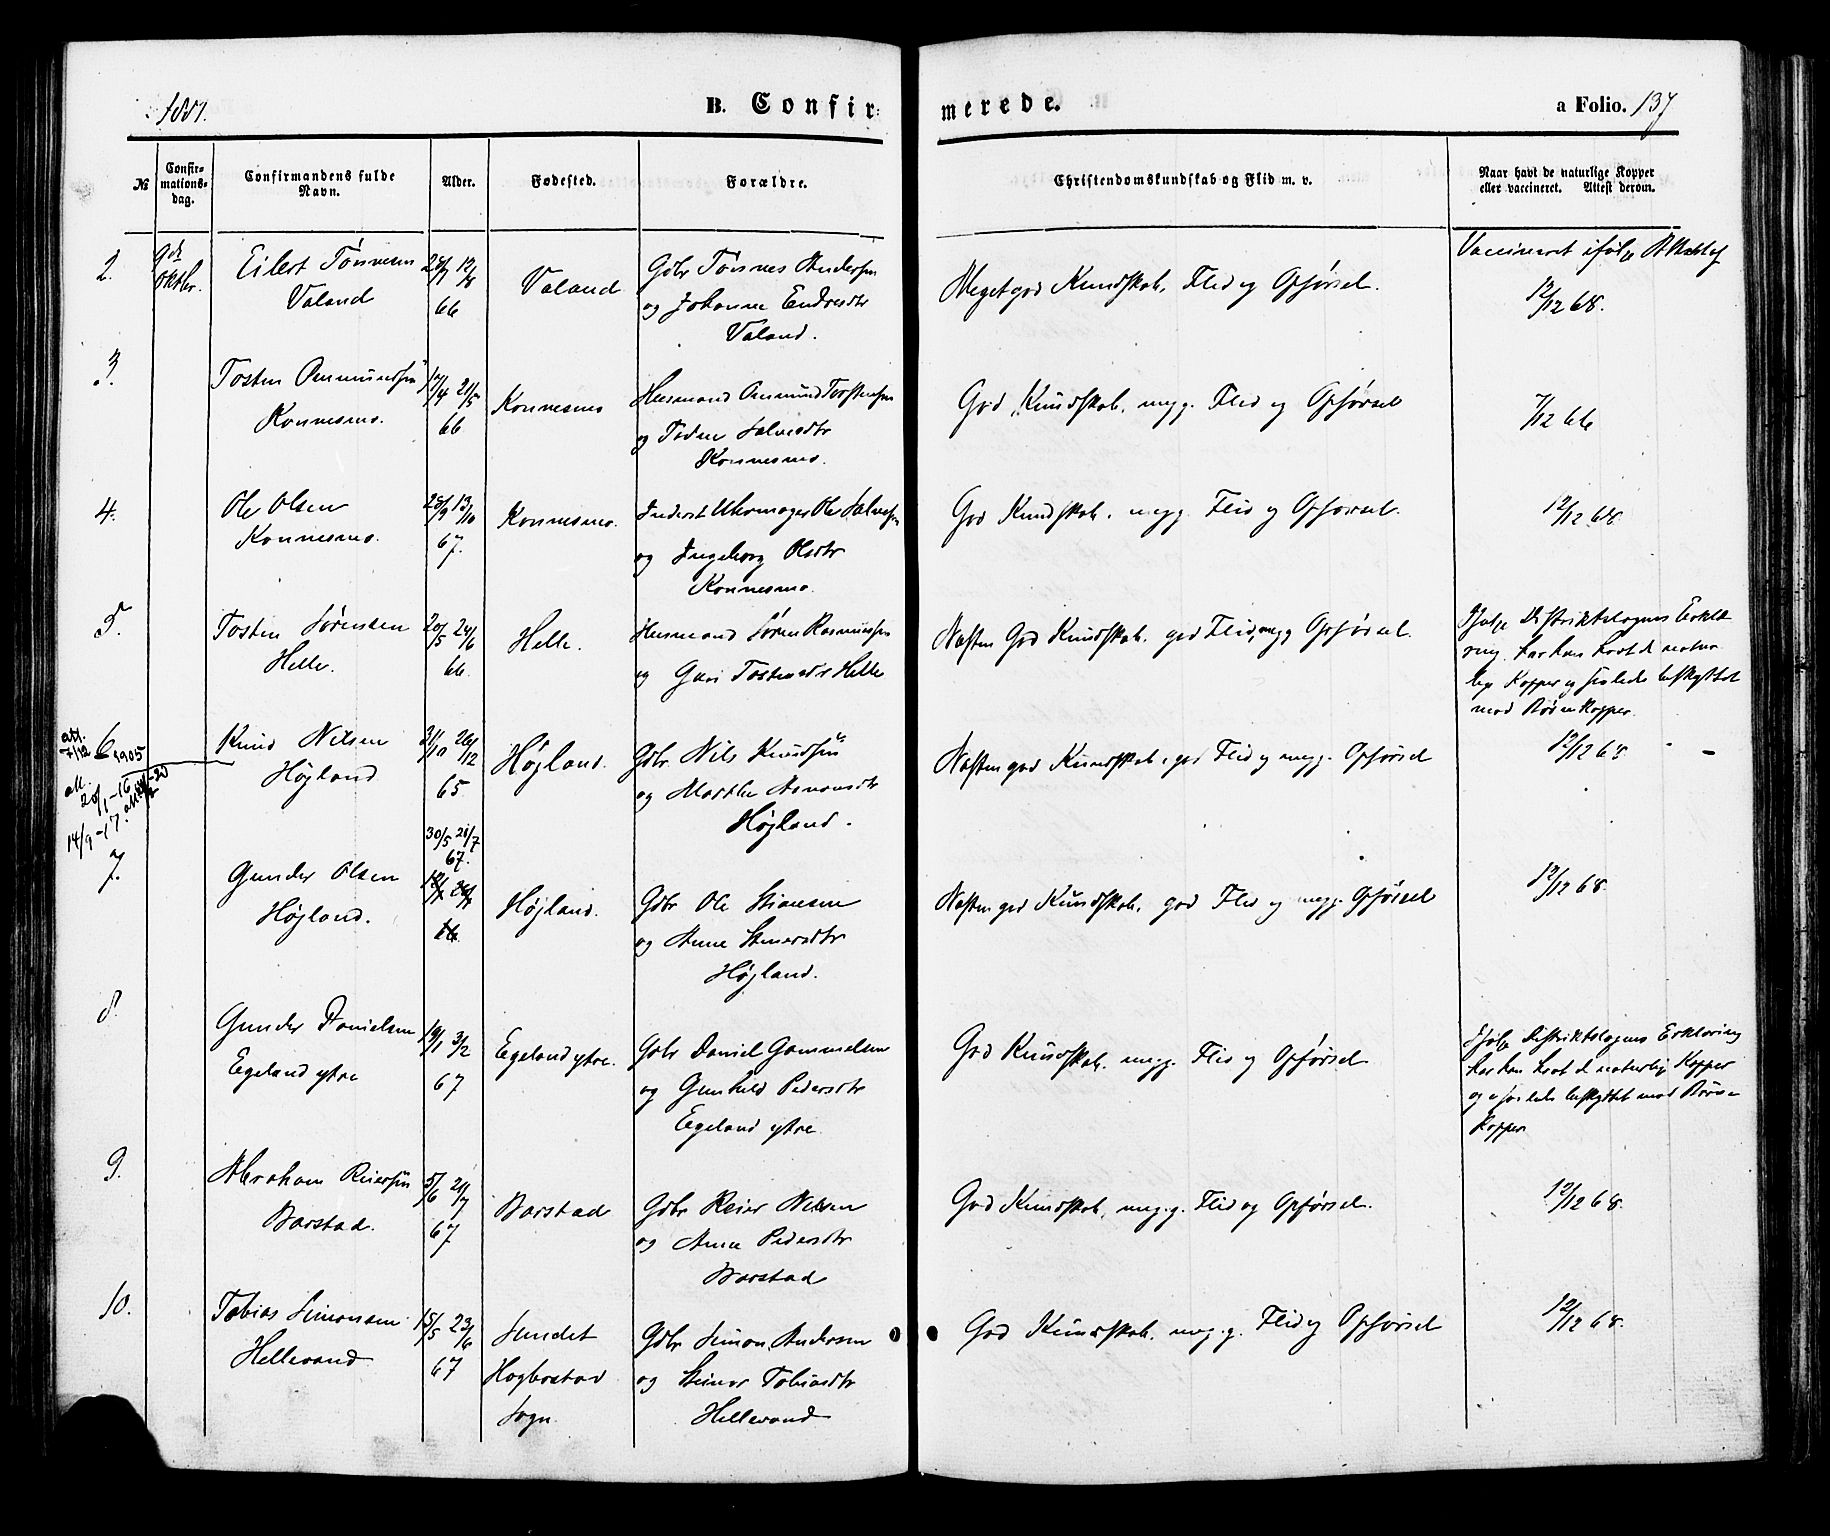 1881.
B. Confir-
merede.
a Folio. 137
№
Confir-
mations-
dag.
Confirmandens fulde
Navn.
Alder.
Fødested.
Forældre.
Christendomskundskab og Flid m. v.
Naar havt de naturlige Kopper
eller vaccineret. Attest derom.
2.
9de
Oktbr.
Eilert Tønnesen
Valand
66
Valand
Gdbr Tønnes Andersen
og Johanne Endresdtr
Valand.
Meget god Kundskab, Flid og Opførsel.
Vaccineret ifølge Attest af
12/12 68.
3.
Tosten Ommundsen
Konnesmo.
17/4 21/5
66
Konnesmo
Husmand Ommund Torstensen
og Salvesdtr
Konnesmo.
God Kundskab, meg. g. Flid og Opførsel
7/12 66
4.
Ole Olsen
Konnesmo.
28/9 13/10
67.
Konnesmo.
Inderst Uhrmager Ole Salvesen
og Ingeborg Olsdtr
Konnesmo.
God Kundskab, meg. g. Flid og Opførsel.
12/12 68.
5.
Tosten Sørensen
Helle.
20/5 24/6
66.
Helle.
Husmand Søren Rasmussen
og Guri Tostensdtr Helle
Næsten God Kundskab, god Flid, meg. g. Opførsel.
Ifølge Distriktslægens Erklæ
ring har han havt de natur
lige Kopper og saaledes beskyttet
mod Børnekopper.
att.
7/12 1905
6
att.
20/1-16
14/9-17.
Knud Nilsen
Højland
31/10 26/12
65
Højland.
Gdbr. Nils Knudsen
og Marthe Aanonsdtr
Højland.
Næsten god Kundskab, god Flid og meg. g. Opførsel
12/12 68.
7.
Gunder Olsen
Højland.
30/5 21/7
67.
66
Højland.
Gdbr Ole Stiansen
og Anne Steinersdtr
Højland.
Næsten god Kundskab, god Flid og meg. g. Opførsel
12/12 68.
8.
Gunder Danielsen
Egeland ytre
19/1 3/2
67
Egeland ytre.
Gdbr Daniel Gammelsen
og Gunhild Pedersdtr
Egeland ytre
God Kundskab, meg. g. Flid og Opførsel
Ifølge Distriktslægens Erklæring
har han havt de naturlige Kopper
og saaledes beskyttet mod Børne
kopper
9.
Abraham Reiersen
Barstad.
5/6 21/7
67
Barstad
Gdbr Reier Nilsen
og Anne Pedersdtr
Barstad
God Kundskab, meg. g. Flid og Opførsel.
12/12 68.
10.
Tobias Simonsen
Hellevand
15/5 23/6
67
Sundet
Hægbostad
Sogn.
Gdbr Simon Andersen
og Steiner Tobiasdtr
Hellevand
God Kundskab, meg. g. Flid og Opførsel
12/12 68.